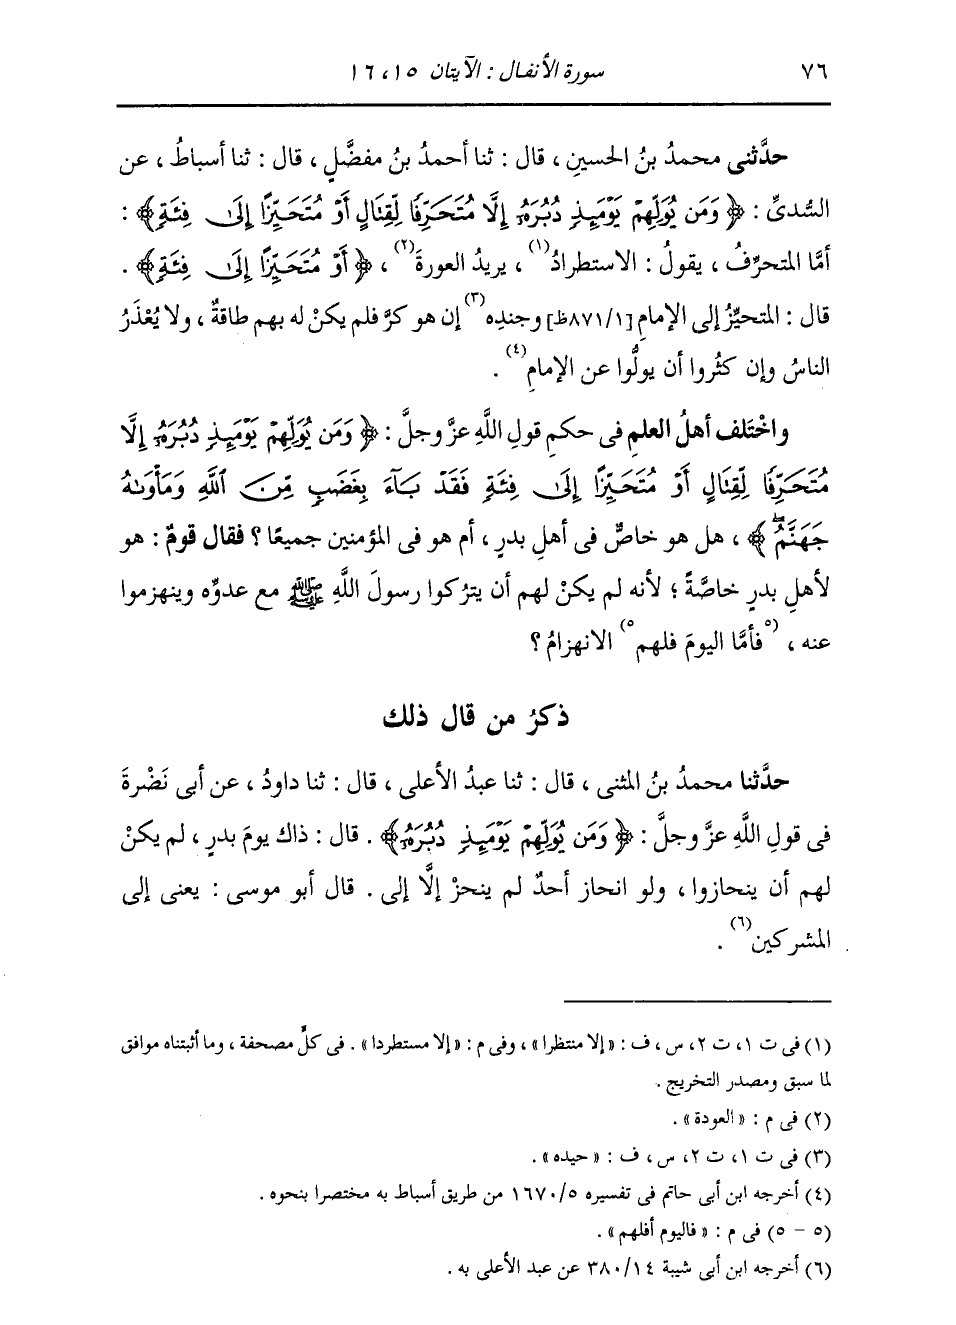 ٧٦ سورة الأنفال : الآيتان ١٥، ١٦
حدَّثنى محمدُ بنُ الحسينِ ، قال : ثنا أحمدُ بنُ مفضَّلٍ ، قال : ثنا أسباطُ ، عن
السُّدىِّ : ﴿ وَمَن يُوَلِّهِمْ يَوْمَئِذٍ دُبُرَهُ إِلَّا مُتَحَرِّفًا لِّقِتَالٍ أَوْ مُتَحَيِّزًا إِلَىٰ فِئَةٍ ﴾ :
أمَّا المتحرِّفُ ، يقولُ : الاستطرادُ(١) ، يريدُ العورةَ(٢) ، ﴿ أَوْ مُتَحَيِّزًا إِلَىٰ فِئَةٍ ﴾ .
قال : المتحيِّزُ إلى الإمامِ [٨٧١/١ظ] وجندِه(٣) إن هو كرَّ فلم يكنْ له بهم طاقةٌ ، ولا يُعْذَرُ
الناسُ وإن كثُروا أن يولُّوا عن الإمامِ(٤) .
واخْتَلف أهلُ العلمِ فى حكمِ قولِ اللَّهِ عزَّ وجلَّ : ﴿ وَمَن يُوَلِّهِمْ يَوْمَئِذٍ دُبُرَهُ إِلَّا
مُتَحَرِّفًا لِّقِتَالٍ أَوْ مُتَحَيِّزًا إِلَىٰ فِئَةٍ فَقَدْ بَآءَ بِغَضَبٍ مِّنَ ٱللَّهِ وَمَأْوَىٰهُ
جَهَنَّمُ ۖ ﴾ ، هل هو خاصٌّ فى أهلِ بدرٍ ، أم هو فى المؤمنين جميعًا ؟ فقال قومٌ : هو
لأهلِ بدرٍ خاصَّةً ؛ لأنه لم يكنْ لهم أن يترُكوا رسولَ اللَّهِ ﷺ مع عدوِّه وينهزموا
عنه ، (٥ فأمَّا اليومَ فلهم ٥) الانهزامُ ؟
ذكرُ من قال ذلك
حدَّثنا محمدُ بنُ المثنى ، قال : ثنا عبدُ الأعلى ، قال : ثنا داودُ ، عن أبى نَضْرةَ
فى قولِ اللَّهِ عزَّ وجلَّ : ﴿ وَمَن يُوَلِّهِمْ يَوْمَئِذٍ دُبُرَهُ ﴾ . قال : ذاك يومَ بدرٍ ، لم يكنْ
لهم أن ينحازوا ، ولو انحاز أحدٌ لم ينحزْ إلَّا إلى . قال أبو موسى : يعنى إلى
المشركين(٦) .
(١) فى ت ١، ت ٢، س ، ف : « إلا منتظرا » ، وفى م : « إلا مستطردا » . فى كلٍّ مصحفة ، وما أثبتناه موافق
لما سبق ومصدر التخريج .
(٢) فى م : « العودة » .
(٣) فى ت ١، ت ٢، س ، ف : « حيده » .
(٤) أخرجه ابن أبى حاتم فى تفسيره ١٦٧٠/٥ من طريق أسباط به مختصرا بنحوه .
(٥ - ٥) فى م : « فاليوم أفلهم » .
(٦) أخرجه ابن أبى شيبة ٣٨٠/١٤ عن عبد الأعلى به .